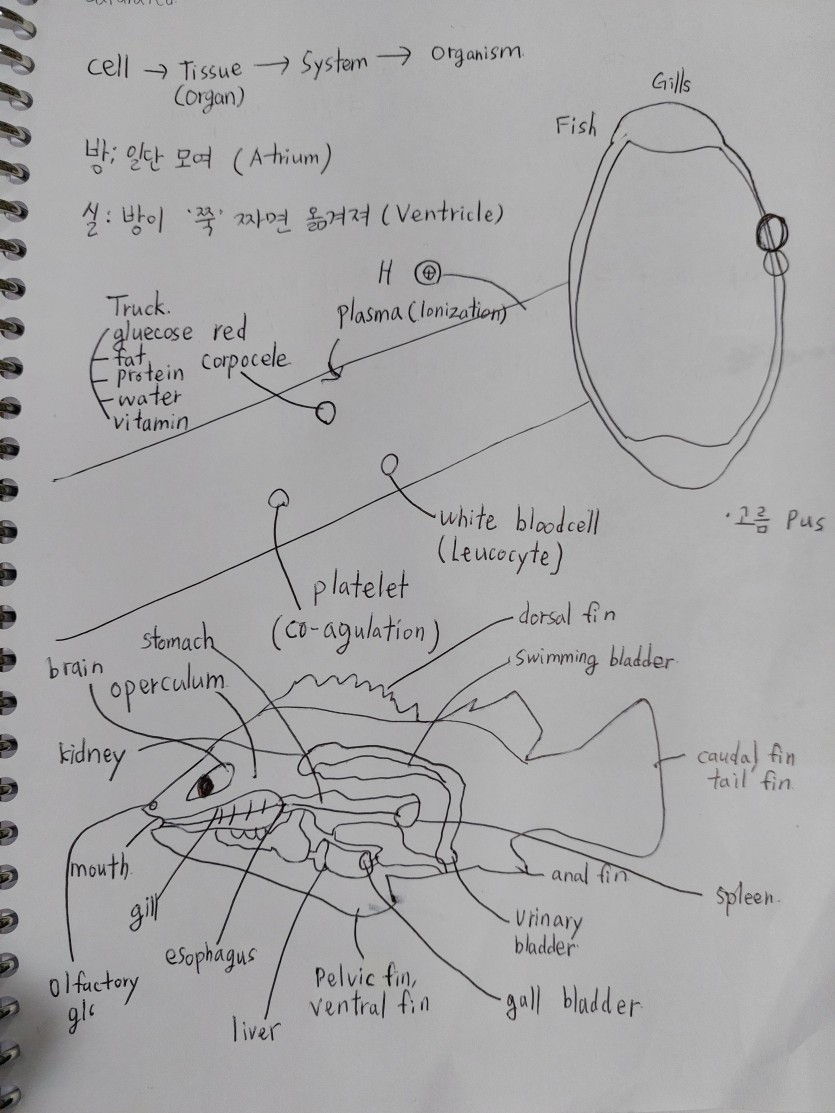 cell → Tissue → System → organism
(organ)
Gills
Fish
방; 일단 모여 (Atrium)
실: 방이 '쭉' 짜면 옮겨져 (Ventricle)
H ⊕
plasma (Ionization)
Truck.
gluecose
fat
protein
water
vitamin
red
corpocele
white bloodcell
(Leucocyte)
· 고름 Pus
platelet
(co-agulation)
dorsal fin
stomach
swimming bladder
brain
operculum
kidney
caudal fin
tail fin
mouth
anal fin
spleen
gill
urinary
bladder
esophagus
olfactory
Pelvic fin,
ventral fin
gall bladder
liver